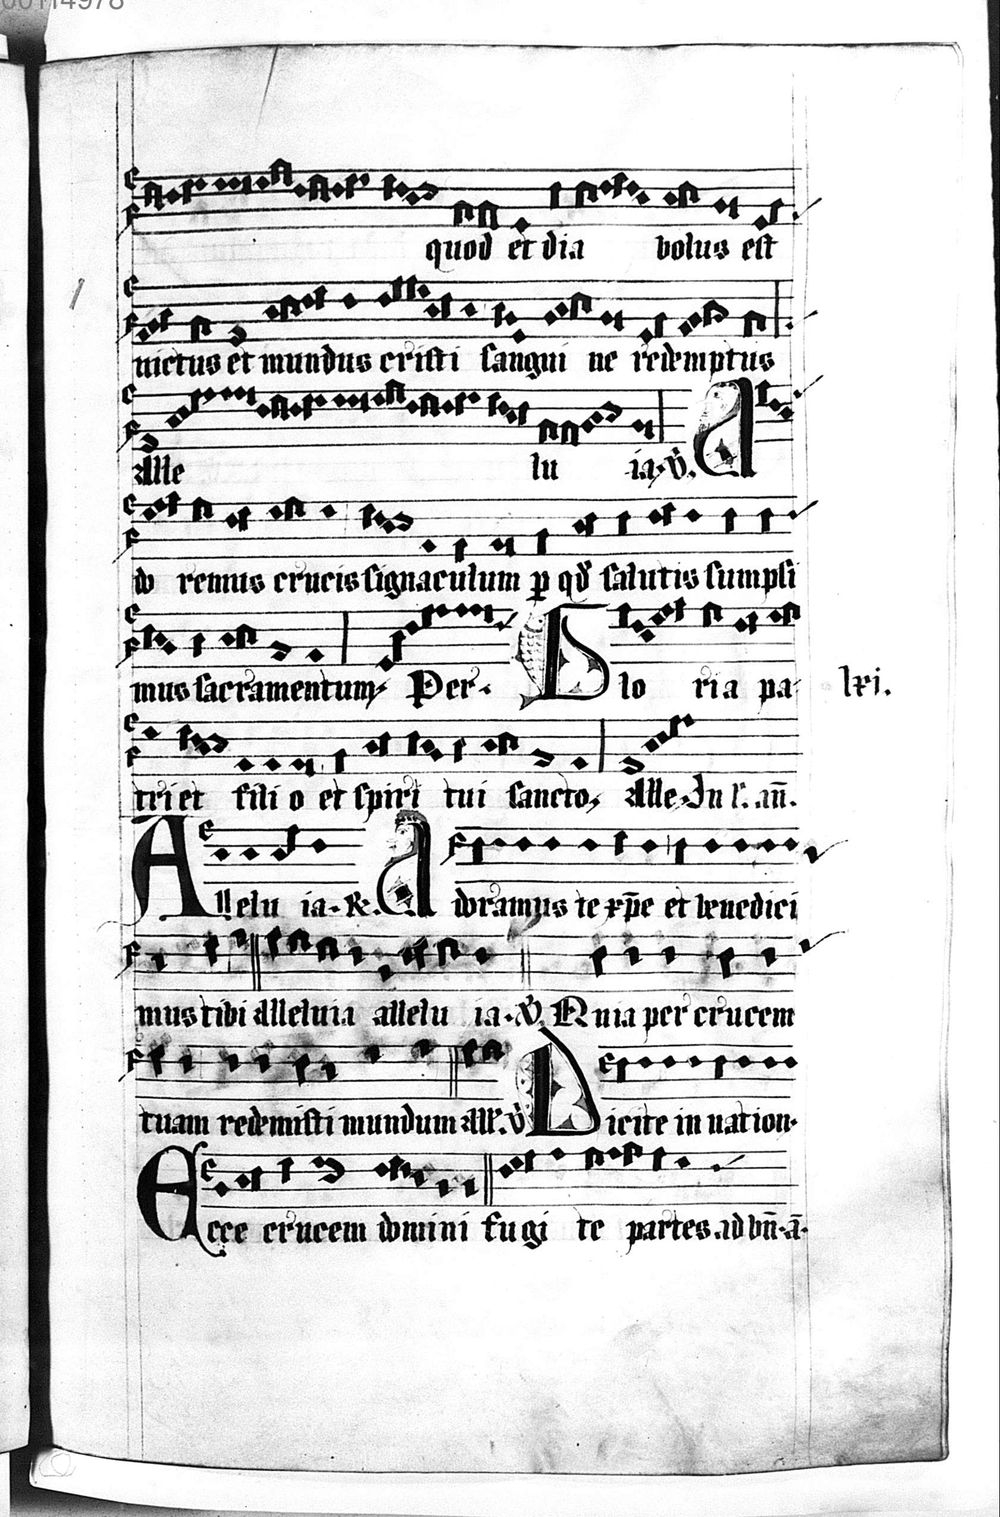 quod et dia bolus est
uictus et mundus cristi sangui ne redemptus
alle lu ia. v. A
do remus crucis signaculum p qd salutis sumpsi
mus sacramentum Per. G lo ria pa lxi.
tri et fili o et spiri tui sancto, alle. In l. an.
Allelu ia. R. A doramus te xpe et benedici
mus tibi alleluia allelu ia. v. Quia per crucem
tuam redemisti mundum all'. v. Dicite in nation.
Ecce crucem domini fugi te partes. ad bn. a.